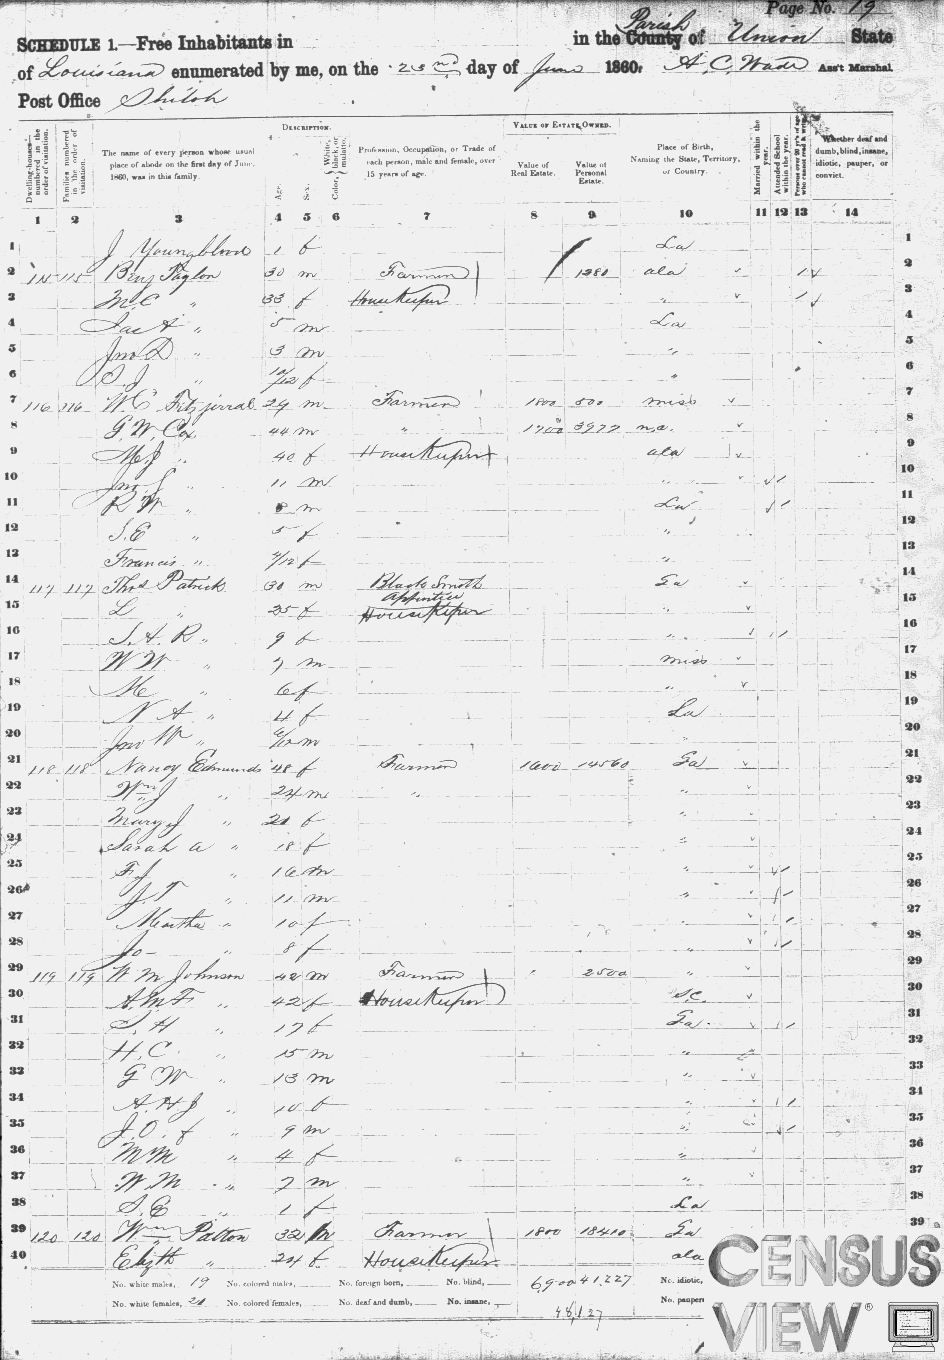 Page No. 19
SCHEDULE 1.—Free Inhabitants in in the County Parish of Union State
of Louisiana enumerated by me, on the 23rd day of June 1860. A. C. Wade Ass't Marshal
Post Office Shiloh
Dwelling-houses—numbered in the order of visitation.
Families numbered in the order of visitation.
The name of every person whose usual place of abode on the first day of June, 1860, was in this family.
DESCRIPTION.
Age.
Sex.
Color, White, black, or mulatto.
Profession, Occupation, or Trade of each person, male and female, over 15 years of age.
VALUE OF ESTATE OWNED.
Value of Real Estate.
Value of Personal Estate.
Place of Birth, Naming the State, Territory, or Country.
Married within the year.
Attended School within the year.
Persons over 20 y'rs of age who cannot read & write.
Whether deaf and dumb, blind, insane, idiotic, pauper, or convict.
1 2 3 4 5 6 7 8 9 10 11 12 13 14
1 J Youngblood 1 f La 1
2 115 115 Benj 30 m Farmer 1280 ala 1 2
3 M.C " 33 f HouseKeeper " 1 3
4 " 5 m La 4
5 Jno D " 3 m " 5
6 S. J " 10/12 f " 6
7 116 116 W.C Fitzjerral 29 m Farmer 1800 500 miss 7
8 G. W. Cox 44 m " 3977 n.c. 8
9 M.J " 40 f HouseKeeper ala 9
10 Jno " 11 m " 1 10
11 R W " 8 m La 1 11
12 S.E " 5 f " 12
13 Francis " f " 13
14 117 117 Thos Patrick 30 m Black Smith Ga 14
15 L " 35 f Apprintice HouseKeeper " 15
16 S. A. R " 9 f " 1 16
17 W W " 7 m miss 17
18 M " 6 f " 18
19 N A " 4 f La 19
20 Jno W " m " 20
21 118 118 Nancy Edmunds 48 f Farmer 1600 14560 Ga 21
22 Wm J " 24 m " " 22
23 Mary J " 21 f " 23
24 Sarah A " 18 f " 24
25 F. J " 16 m " 1 25
26 J. T " 11 m " 1 26
27 Martha " 10 f " 1 27
28 Jo " 8 f " 1 28
29 119 119 W M Johnson 42 m Farmer " 2500 " 29
30 A.M.F " 42 f HouseKeeper S.C. 30
31 S. H " 17 f Ga. 1 31
32 H. C " 15 m " 32
33 G W " 13 m " 33
34 A. H J " 10 f " 1 34
35 J. O. f " 9 m " 1 35
36 M M " 4 f " 36
37 W. M " 2 m " 37
38 S. E " 1 f La 38
39 120 120 Wm Patton 32 M Farmer 1800 18410 Ga 39
40 Elizth " 24 f HouseKeeper ala
No. white males, 19 No. colored males, No. foreign born, No. blind, 6,900 41,227 No. idiotic,
No. white females, 21 No. colored females, No. deaf and dumb, No. insane, 48,127 No. paupers
CENSUS
VIEW®